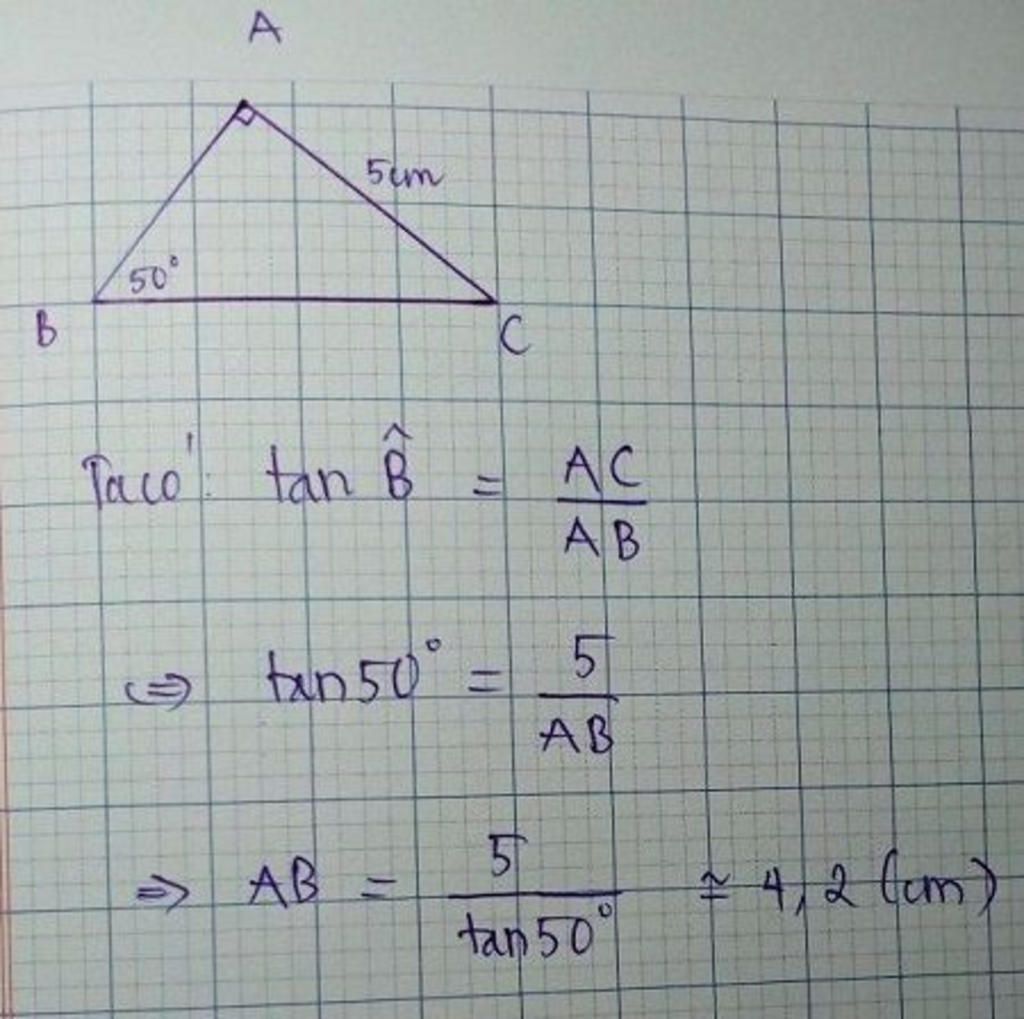 A
5cm
50°
B
C
Ta có: tan B̂ = AC/AB
⇔ tan 50° = 5/AB
⇒ AB = 5/tan 50° ≃ 4,2 (cm)